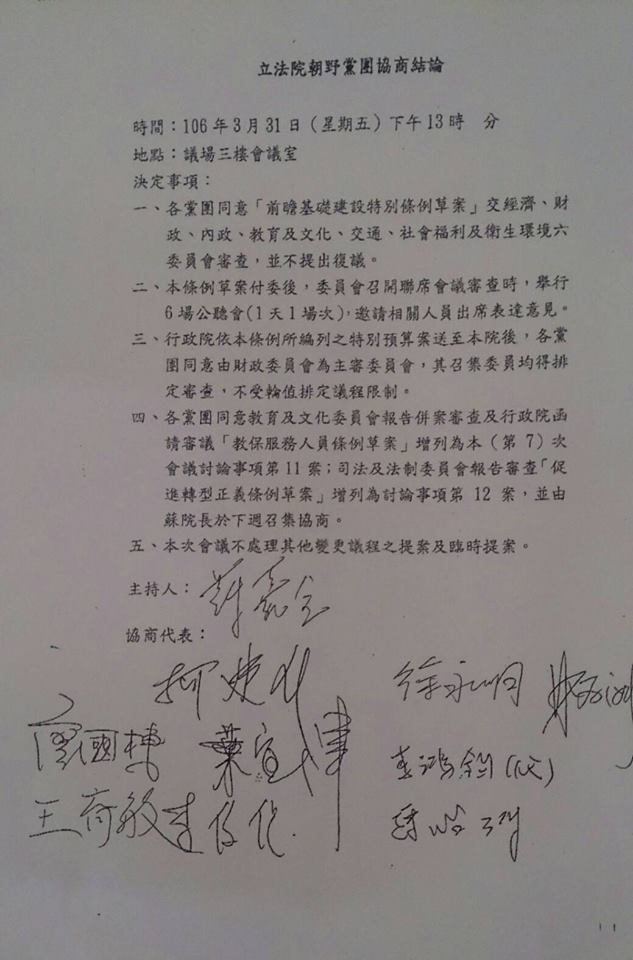 立法院朝野黨團協商結論
時間：106年3月31日（星期五）下午13時　分
地點：議場三樓會議室
決定事項：
一、各黨團同意「前瞻基礎建設特別條例草案」交經濟、財
政、內政、教育及文化、交通、社會福利及衛生環境六
委員會審查，並不提出復議。
二、本條例草案付委後，委員會召開聯席會議審查時，舉行
6場公聽會(1天1場次)，邀請相關人員出席表達意見。
三、行政院依本條例所編列之特別預算案送至本院後，各黨
團同意由財政委員會為主審委員會，其召集委員均得排
定審查，不受輪值排定議程限制。
四、各黨團同意教育及文化委員會報告併案審查及行政院函
請審議「教保服務人員條例草案」增列為本（第7）次
會議討論事項第11案；司法及法制委員會報告審查「促
進轉型正義條例草案」增列為討論事項第 12 案，並由
蘇院長於下週召集協商。
五、本次會議不處理其他變更議程之提案及臨時提案。
主持人：蘇嘉全
協商代表：
柯建銘 徐永明
廖國棟 葉宜津 李鴻鈞(代)
王育敏 李俊俋